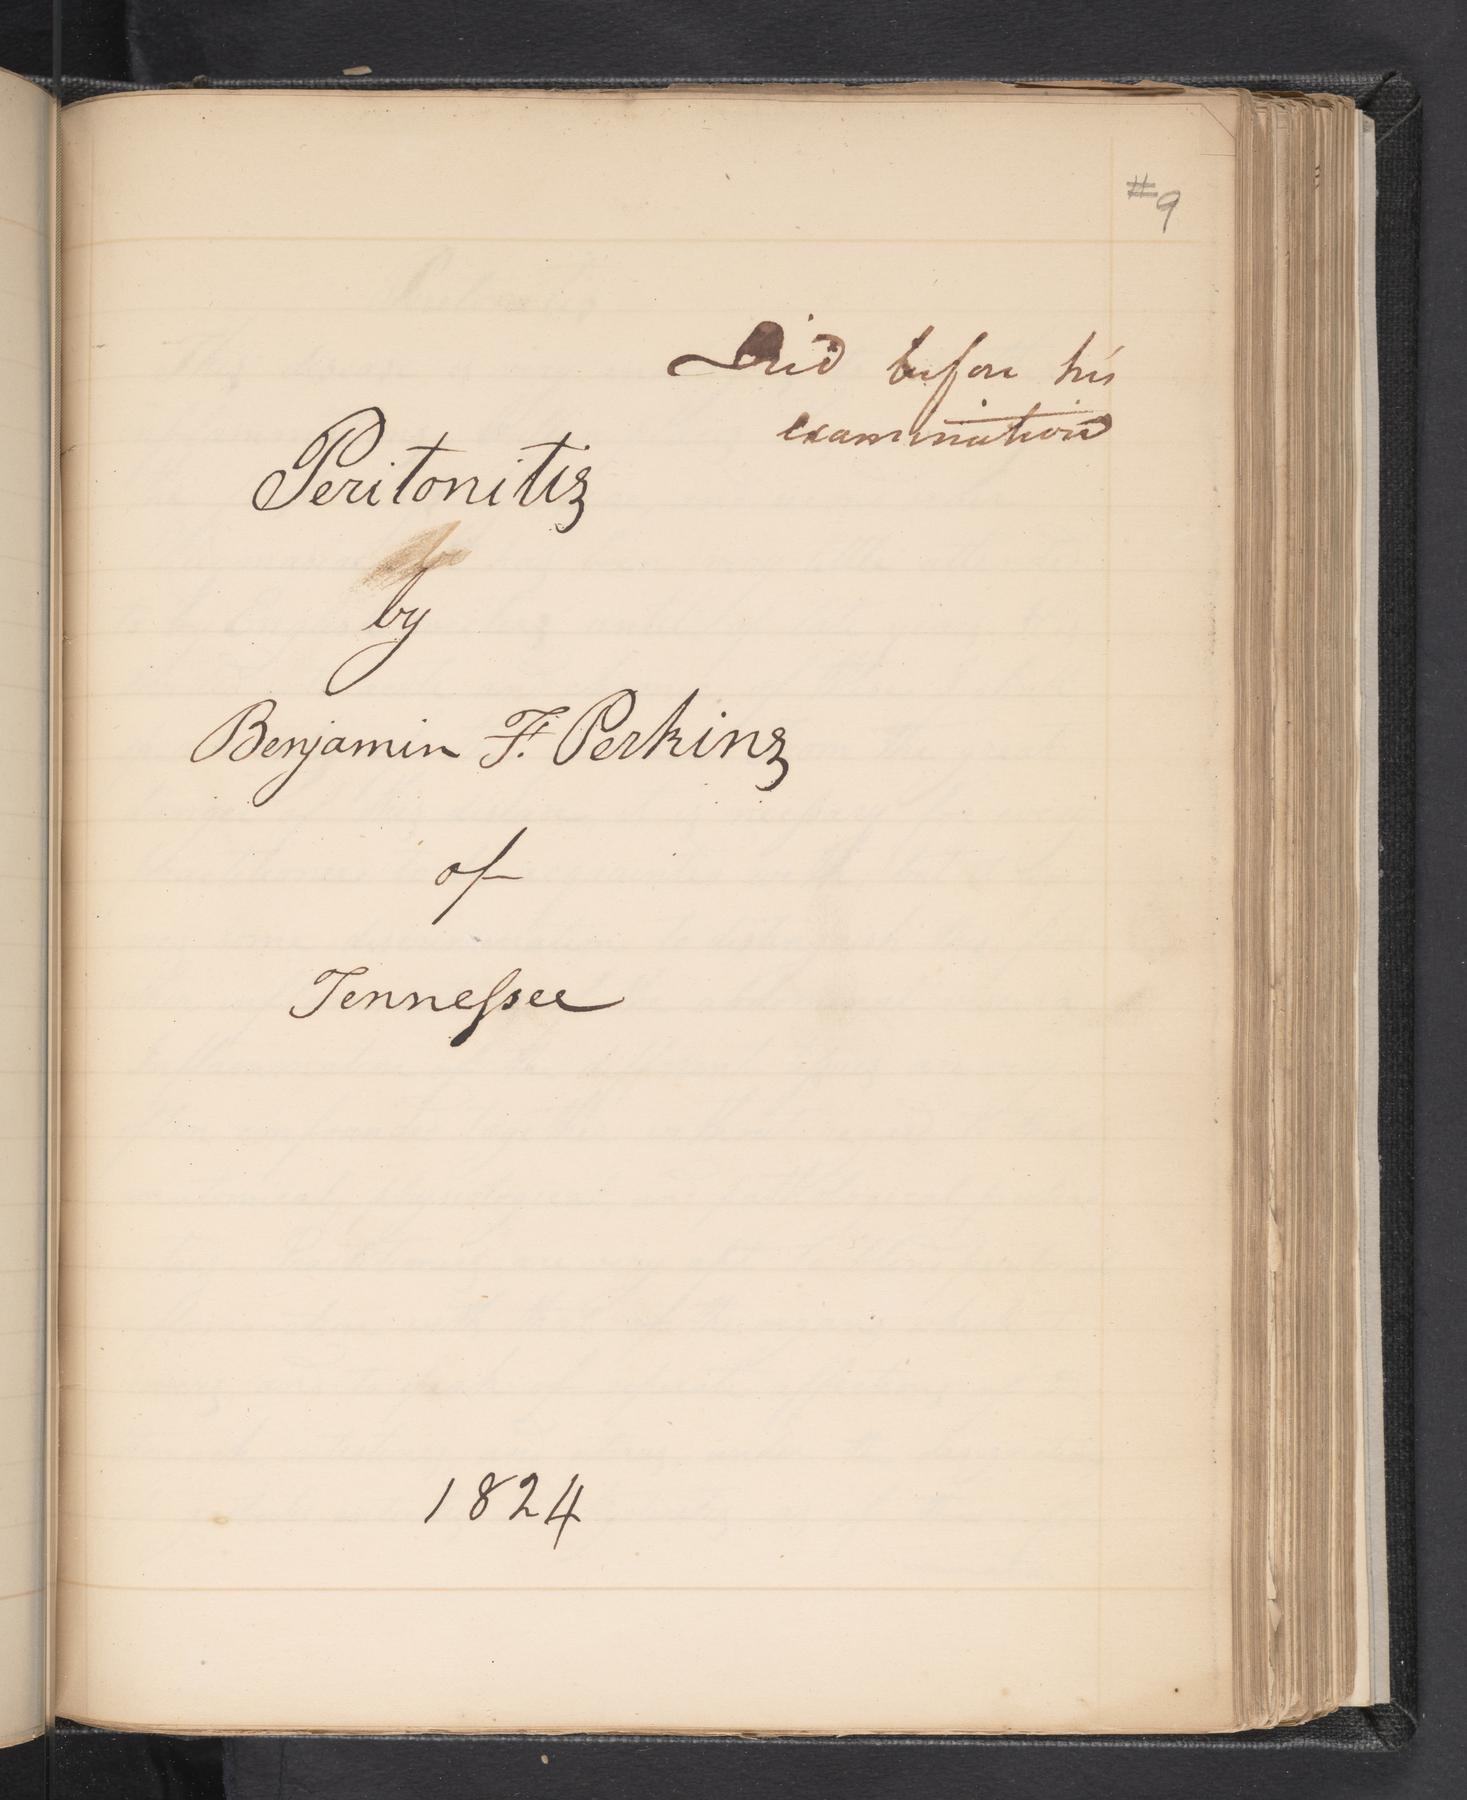 #9
Died before his
examination
Peritonitis
by
Benjamin F. Perkins
of
Tennessee
1824